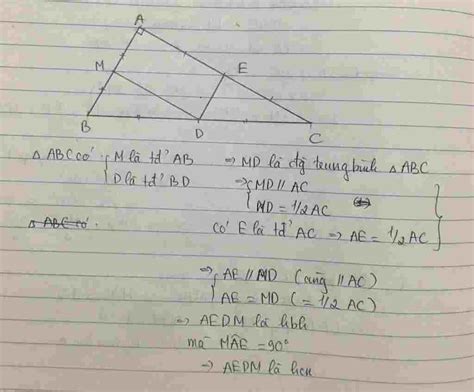 A
M
E
B
D
C
Δ ABC có { M là tđ' AB ⇒ MD là đg trung bình Δ ABC
D là tđ' BD ⇒ { MD // AC
MD = 1/2 AC
Δ ABC có
có E là tđ' AC ⇒ AE = 1/2 AC }
⇒ { AE // MD (cùng // AC)
AE = MD (= 1/2 AC)
⇒ AEDM là hbh
mà MÂE = 90°
⇒ AEDM là hcn